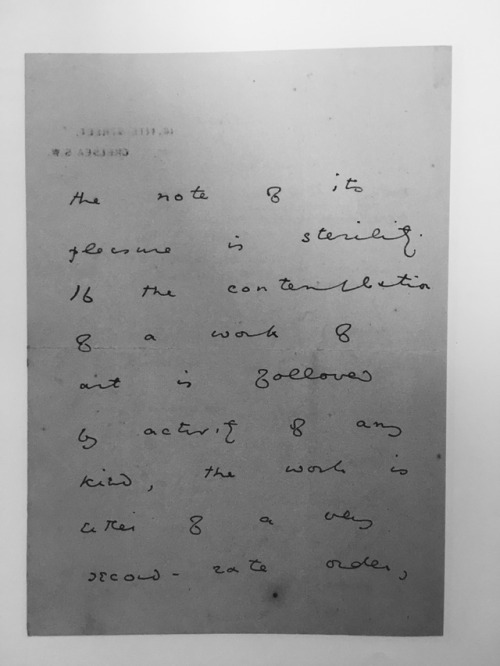 16, TITE STREET,
CHELSEA S.W.
the note of its
pleasure is sterility.
If the contemplation
of a work of
art is followed
by activity of any
kind, the work is
either of a very
second-rate order,